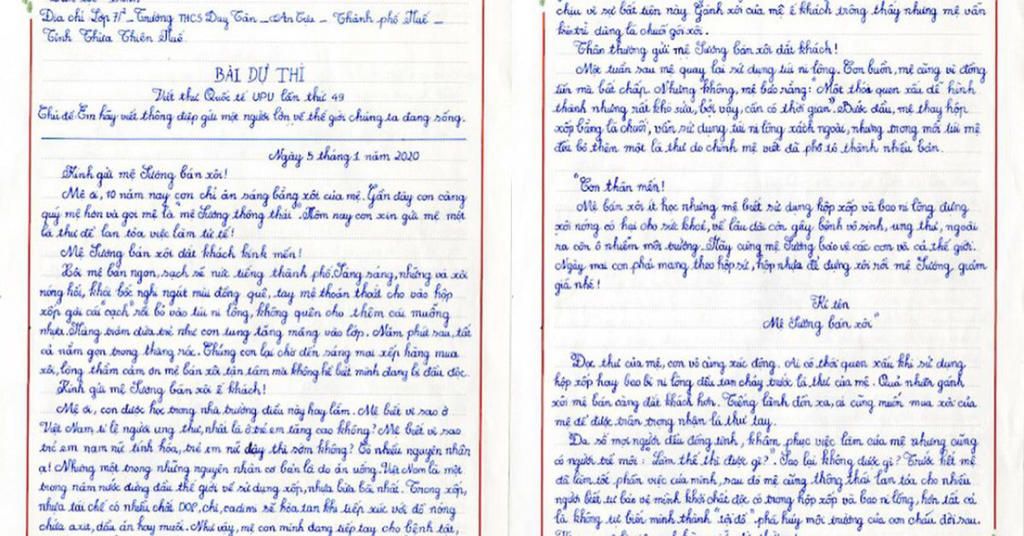 Địa chỉ Lớp 7/ - Trường THCS Duy Tân - An Cựu - Thành phố Huế -
Tỉnh Thừa Thiên Huế.
BÀI DỰ THI
Viết thư Quốc tế UPU lần thứ 49
Chủ đề Em hãy viết thông điệp gửi một người lớn về thế giới chúng ta đang sống.
Ngày 5 tháng 1 năm 2020
Kính gửi mệ Sương bán xôi!
Mệ ơi, 10 năm nay con chỉ ăn sáng bằng xôi của mệ. Gần đây con càng
quý mệ hơn và gọi mệ là "mệ Sương thông thái". Hôm nay con xin gửi mệ một
lá thư để lan tỏa việc làm tử tế!
Mệ Sương bán xôi đắt khách kính mến!
Xôi mệ bán ngon, sạch sẽ nức tiếng thành phố. Sáng sáng, những vá xôi
nóng hổi, khói bốc nghi ngút mùi đồng quê, tay mệ thoăn thoắt cho vào hộp
xốp gài cái "cạch" rồi bỏ vào túi ni lông, không quên cho thêm cái muỗng
nhựa. Hàng trăm đứa trẻ như con tung tăng mang vào lớp. Năm phút sau, tất
cả nằm gọn trong thùng rác. Chúng con lại chờ đến sáng mai xếp hàng mua
xôi, lòng thầm cảm ơn mệ bán xôi tận tâm mà không hề biết mình đang bị đầu độc.
Kính gửi mệ Sương bán xôi ế khách!
Mệ ơi, con được học trong nhà trường điều này hay lắm. Mệ biết vì sao ở
Việt Nam, tỉ lệ người ung thư, nhất là ở trẻ em tăng cao không? Mệ biết vì sao
trẻ em nam nữ tính hóa, trẻ em nữ dậy thì sớm không? Có nhiều nguyên nhân
ạ! Nhưng một trong những nguyên nhân cơ bản là do ăn uống. Việt Nam là một
trong năm nước đứng đầu thế giới về sử dụng xốp, nhựa bừa bãi nhất. Trong xốp,
nhựa tái chế có nhiều chất DOP, chì, cadimi sẽ hòa tan khi tiếp xúc với đồ nóng
chứa axit, dầu ăn hay muối. Như vậy, mệ con mình đang tiếp tay cho bệnh tật,
chịu vì sự bất tiện này. Gánh xôi của mệ ế khách trông thấy nhưng mệ vẫn
kiên trì dùng lá chuối gói xôi.
Thân thương gửi mệ Sương bán xôi đắt khách!
Một tuần sau mệ quay lại sử dụng túi ni lông. Con buồn, mệ cũng vì đồng
tiền mà bất chấp. Nhưng không, mệ bảo rằng: "Một thói quen xấu dễ hình
thành nhưng rất khó sửa, bởi vậy, cần có thời gian". Bước đầu, mệ thay hộp
xốp bằng lá chuối, vẫn sử dụng túi ni lông xách ngoài, nhưng trong mỗi túi mệ
đều bỏ thêm một lá thư do chính mệ viết đã phô tô thành nhiều bản.
"Con thân mến!
Mệ bán xôi ít học nhưng mệ biết sử dụng hộp xốp và bao ni lông đựng
xôi nóng có hại cho sức khoẻ, về lâu dài còn gây bệnh vô sinh, ung thư, ngoài
ra còn ô nhiễm môi trường. Hãy cùng mệ Sương bảo vệ các con và cả thế giới.
Ngày mai con phải mang theo hộp sứ, hộp nhựa để đựng xôi rồi mệ Sương, giảm
giá nhé!
Kí tên
Mệ Sương bán xôi"
Đọc thư của mệ, con vô cùng xúc động. Ai có thói quen xấu khi sử dụng
hộp xốp hay bao bì ni lông đều tan chảy trước lá thư của mệ. Quả nhiên gánh
xôi mệ bán càng đắt khách hơn. Tiếng lành đồn xa, ai cũng muốn mua xôi của
mệ để được trân trọng nhận lá thư tay.
Đa số mọi người đều đồng tình, khâm phục việc làm của mệ nhưng cũng
có người trề môi: "Làm thế thì được gì?". Sao lại không được gì? Trước hết mệ
đã làm tốt phần việc của mình, sau đó mệ cũng thông thái lan tỏa cho nhiều
người biết tự bảo vệ mình khỏi chất độc có trong hộp xốp và bao ni lông, hơn tất cả
là không tự biến mình thành "tội đồ" phá hủy môi trường của con cháu đời sau.